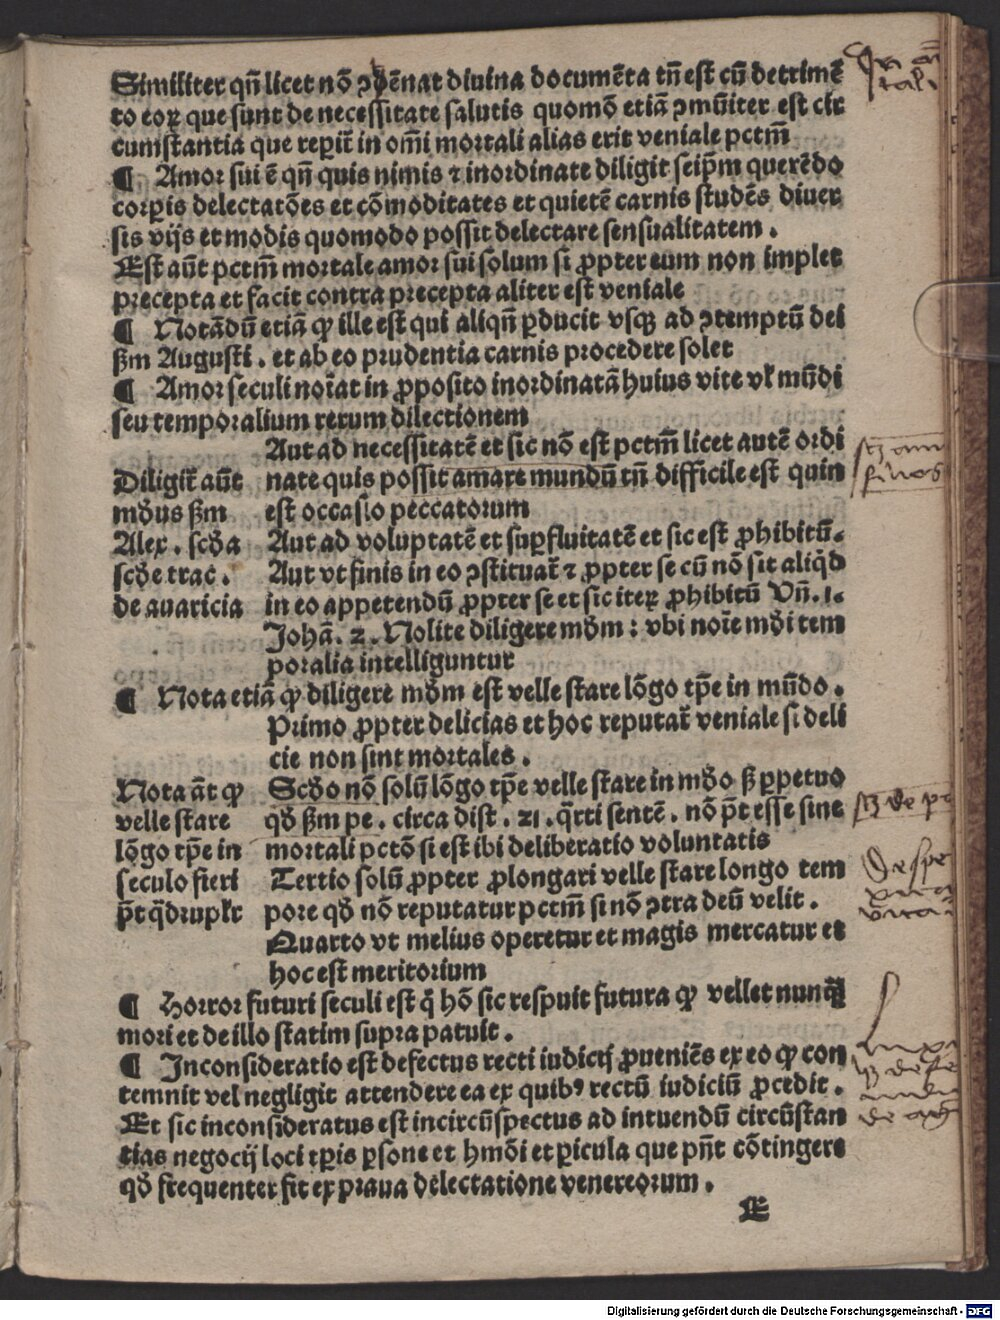 Similiter qñ licet nō ꝯdēnat diuina documēta tñ est cū detrimē
to eoꝝ que sunt de necessitate salutis quomō etiā ꝯmūiter est cir
cumstantia que reꝑit̄ in om̄i mortali alias erit veniale pctm̄
¶ Amor sui ē qñ quis nimis ⁊ inordinate diligit seip̄m querēdo
corꝑis delectatōes et cōmoditates et quietē carnis studēs diuer
sis vijs et modis quomodo possit delectare sensualitatem .
Est aūt pctm̄ mortale amor sui solum si ꝓpter eum non implet
precepta et facit contra precepta aliter est veniale
¶ Notādū etiā ꝙ ille est qui aliqñ ꝑducit vsqꝫ ad ꝯtemptū dei
ẜm Augusti . et ab eo prudentia carnis procedere solet
¶ Amor seculi noīat in ꝓposito inordinatā huius vite vl̓ mūdi
seu temporalium rerum dilectionem
Aut ad necessitatē et sic nō est pctm̄ licet autē ordi
Diligit̄ aūt nate quis possit amare mundū tñ difficile est quin
mūdus ẜm est occasio peccatorum
Alex . scḋa Aut ad voluptatē et suꝑfluitatē et sic est ꝓhibitū.
scḋe trac . Aut vt finis in eo ꝯstituat̄ ⁊ ꝓpter se cū nō sit aliqd̓
de auaricia in eo appetendū ꝓpter se et sic iteꝝ ꝓhibitū Vñ. 1.
Johā. 2. Nolite diligere mūdm : vbi noīe mūdi tem
poralia intelliguntur
¶ Nota etiā ꝙ diligere mūdm est velle stare lōgo tp̄e in mūdo .
Primo ꝓpter delicias et hoc reputat̄ veniale si deli
cie non sint mortales .
Nota āt ꝙ Scḋo nō solū lōgo tp̄e velle stare in mūdo ẜꝫ ꝑpetuo
velle stare qḋ ẜm pe . circa dist . 21 . q̄rti sentē . nō pt̄ esse sine
lōgo tp̄e in mortali pctō si est ibi deliberatio voluntatis
seculo fieri Tertio solū ꝓpter ꝓlongari velle stare longo tem
pt̄ q̄drupl̓r pore qḋ nō reputatur pctm̄ si nō ꝯtra deū velit .
Quarto vt melius operetur et magis mercatur et
hoc est meritorium
¶ Horror futuri seculi est q̄ hō sic respuit futura ꝙ vellet nunq̄
mori et de illo statim supra patuit .
¶ Inconsideratio est defectus recti iudicij ꝓueniēs ex eo ꝙ con
temnit vel negligit attendere ea ex quibꝰ rectū iudiciū ꝓcedit .
Et sic inconsideratus est incircūspectus ad intuendū circūstan
tias negocij loci tꝑis ꝑsone et hmōi et ꝑicula que pn̄t cōtingere
qḋ frequenter fit ex praua delectatione venereorum .
E
Digitalisierung gefördert durch die Deutsche Forschungsgemeinschaft - DFG